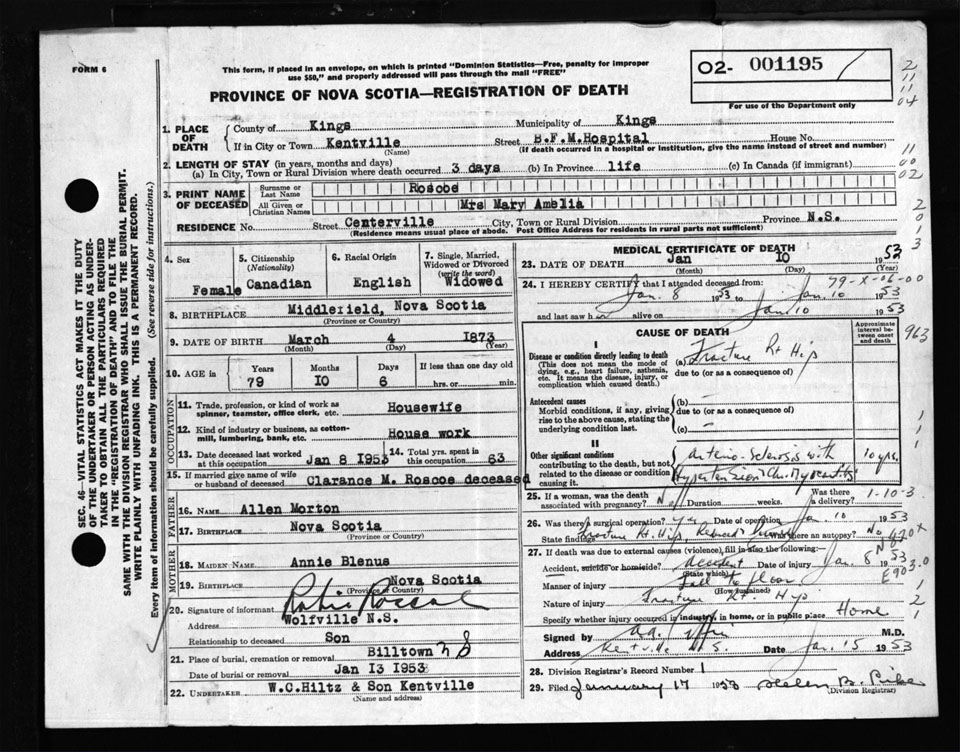 FORM 6
This form, if placed in an envelope, on which is printed "Dominion Statistics—Free, penalty for improper
use $50," and properly addressed will pass through the mail "FREE"
PROVINCE OF NOVA SCOTIA—REGISTRATION OF DEATH
O2- 001195 /
For use of the Department only
2
11
04
11
00
02
2
0
1
3
SEC. 46—VITAL STATISTICS ACT MAKES IT THE DUTY
OF THE UNDERTAKER OR PERSON ACTING AS UNDER-
TAKER TO OBTAIN ALL THE PARTICULARS REQUIRED
IN THE "REGISTRATION OF DEATH" AND TO FILE THE
SAME WITH THE DIVISION REGISTRAR WHO SHALL ISSUE THE BURIAL PERMIT.
WRITE PLAINLY WITH UNFADING INK. THIS IS A PERMANENT RECORD.
Every item of information should be carefully supplied. (See reverse side for instructions.)
1. PLACE OF DEATH
County of Kings Municipality of Kings
If in City or Town Kentville Street B.F.M.Hospital House No.
(Name) (If death occurred in a hospital or institution, give the name instead of street and number)
2. LENGTH OF STAY (in years, months and days)
(a) In City, Town or Rural Division where death occurred 3 days (b) In Province life (c) In Canada (if immigrant)
3. PRINT NAME OF DECEASED
Surname or Last Name Roscoe
All Given or Christian Names Mrs Mary Amelia
RESIDENCE No. Street Centerville City, Town or Rural Division Province N.S.
(Residence means usual place of abode. Post Office Address for residents in rural parts not sufficient)
4. Sex Female
5. Citizenship (Nationality) Canadian
6. Racial Origin English
7. Single, Married, Widowed or Divorced (write the word) Widowed
8. BIRTHPLACE Middlefield, Nova Scotia
(Province or Country)
9. DATE OF BIRTH March 4 1873
(Month) (Day) (Year)
10. AGE in Years 79 Months 10 Days 6 If less than one day old hrs. or min.
OCCUPATION
11. Trade, profession, or kind of work as spinner, teamster, office clerk, etc. Housewife
12. Kind of industry or business, as cotton-mill, lumbering, bank, etc. House work
13. Date deceased last worked at this occupation Jan 8 1953
14. Total yrs. spent in this occupation 63
15. If married give name of wife or husband of deceased Clarance M. Roscoe deceased
FATHER
16. NAME Allen Morton
17. BIRTHPLACE Nova Scotia
(Province or Country)
MOTHER
18. MAIDEN NAME Annie Blenus
19. BIRTHPLACE Nova Scotia
(Province or Country)
20. Signature of informant
Address Wolfville N.S.
Relationship to deceased Son
21. Place of burial, cremation or removal Billtown N S
Date of burial or removal Jan 13 1953
22. UNDERTAKER W.C.Hiltz & Son Kentville
(Name and address)
MEDICAL CERTIFICATE OF DEATH
23. DATE OF DEATH Jan 10 1953
(Month) (Day) (Year)
79-X-06-00
24. I HEREBY CERTIFY that I attended deceased from:
Jan. 8 1953 to Jan. 10 1953
and last saw h alive on Jan 10 1953
CAUSE OF DEATH
Approximate interval between onset and death
963
I
Disease or condition directly leading to death
(This does not mean the mode of dying, e.g., heart failure, asthenia, etc. It means the disease, injury, or complication which caused death.)
(a) Fracture Rt Hip
due to (or as a consequence of)
Antecedent causes
Morbid conditions, if any, giving rise to the above cause, stating the underlying condition last.
(b) —
due to (or as a consequence of)
(c) —
1
1
1
II
Other significant conditions
contributing to the death, but not related to the disease or condition causing it.
Arterio-Sclerosis with
Hypertension Chr. Myocarditis
10 yrs.
25. If a woman, was the death associated with pregnancy? No Duration weeks. Was there a delivery?
1-10-3
26. Was there a surgical operation? Yes Date of operation Jan 10 1953
State findings Fracture Rt. Hip, Reduced Was there an autopsy? No
27. If death was due to external causes (violence), fill in also the following:
Accident, suicide or homicide? Accident Date of injury Jan. 8 1953
(State which)
E903.0
Manner of injury Fall to floor
(How sustained)
Nature of injury Fracture Rt. Hip
2
1
Specify whether injury occurred in industry, in home, or in public place Home
Signed by M.D.
Address Kentville N.S. Date Jan. 15 1953
28. Division Registrar's Record Number 1
29. Filed January 17 1953 Helen B.
(Division Registrar)